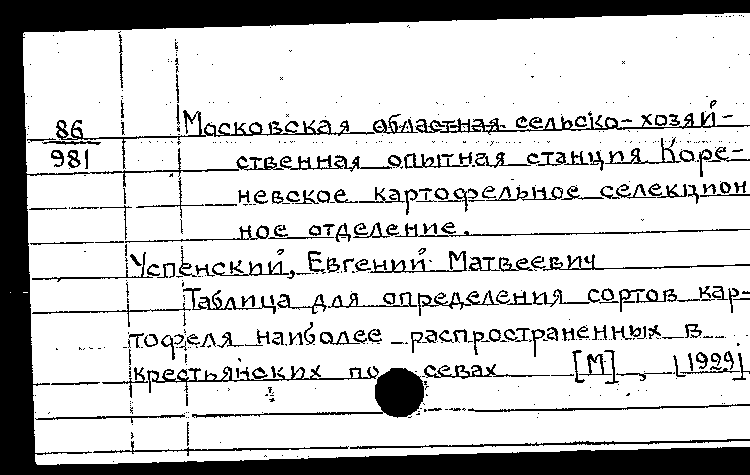 86
981
Московская областная сельско-хозяй-
ственная опытная станция Коре-
невское картофельное селекцион
ное отделение.
Успенский, Евгений Матвеевич
Таблица для определения сортов кар-
тофеля наиболее распространенных в
крестьянских по севах [М], [1929]